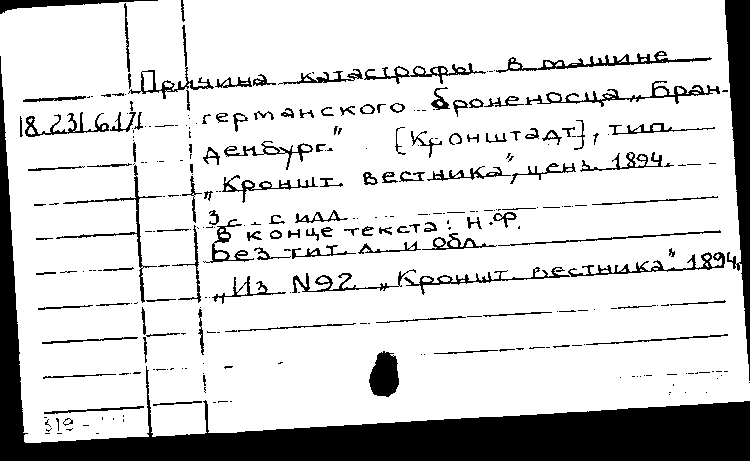 Причина катастрофы в машине
18.231.6.171
германского броненосца „Бран-
денбург." [Кронштадт], тип.
„Кроншт. вестника", ценз. 1894.
3 с. с илл.
В конце текста: Н.Ф.
Без тит. л. и обл.
„Из N92 „Кроншт. вестника". 1894,
319 -